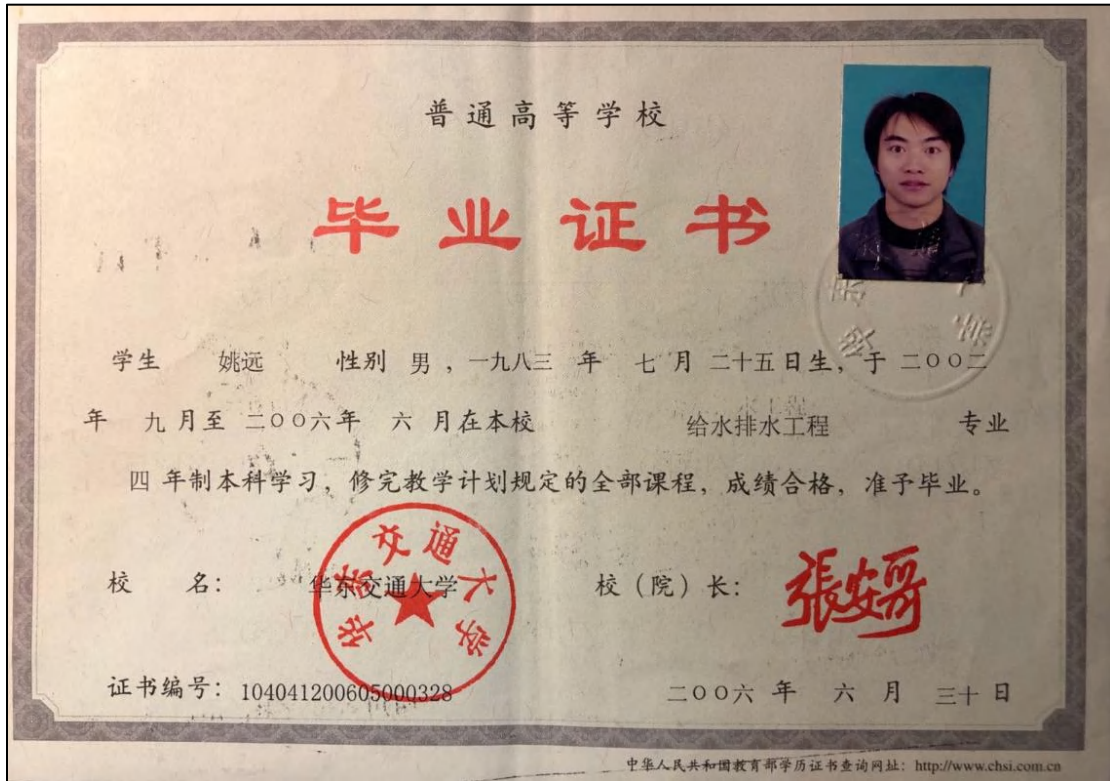 普通高等学校
毕业证书
学生 姚远 性别 男 ，一九八三 年 七 月 二十五日生，于 二〇〇二
年 九 月至 二〇〇六年 六 月在本校 给水排水工程 专业
四 年制本科学习，修完教学计划规定的全部课程，成绩合格，准予毕业。
华东交通大学
校 名： 华东交通大学 校（院）长： 張安哥
证书编号：104041200605000328 二〇〇六 年 六 月 三十 日
中华人民共和国教育部学历证书查询网址：http://www.chsi.com.cn